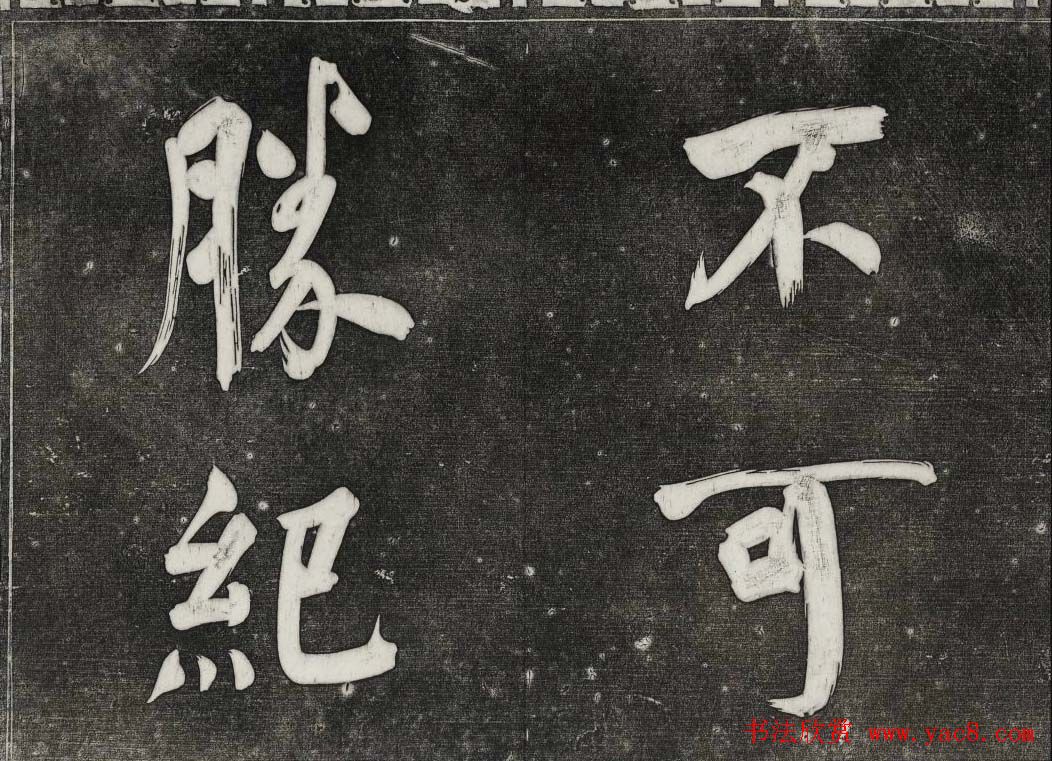 不可
勝紀
书法欣赏 www.yac8.com